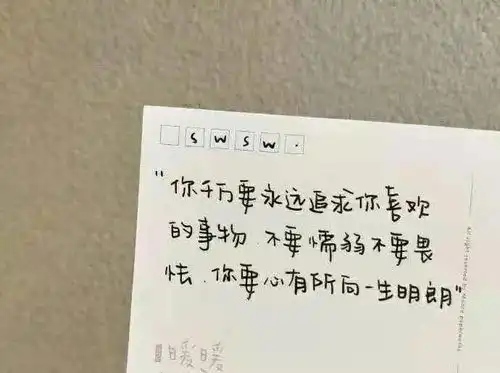 S W S W .
"你千万要永远追求你喜欢
的事物.不要懦弱不要畏
怯.你要心有所向一生明朗"
暖暖